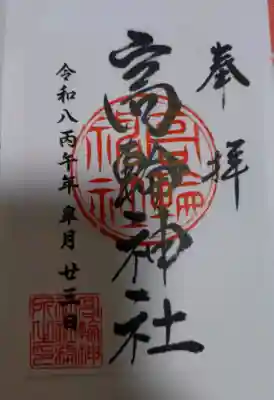 奉拝
高輪神社
令和八丙午年皐月廿三日
高輪神社